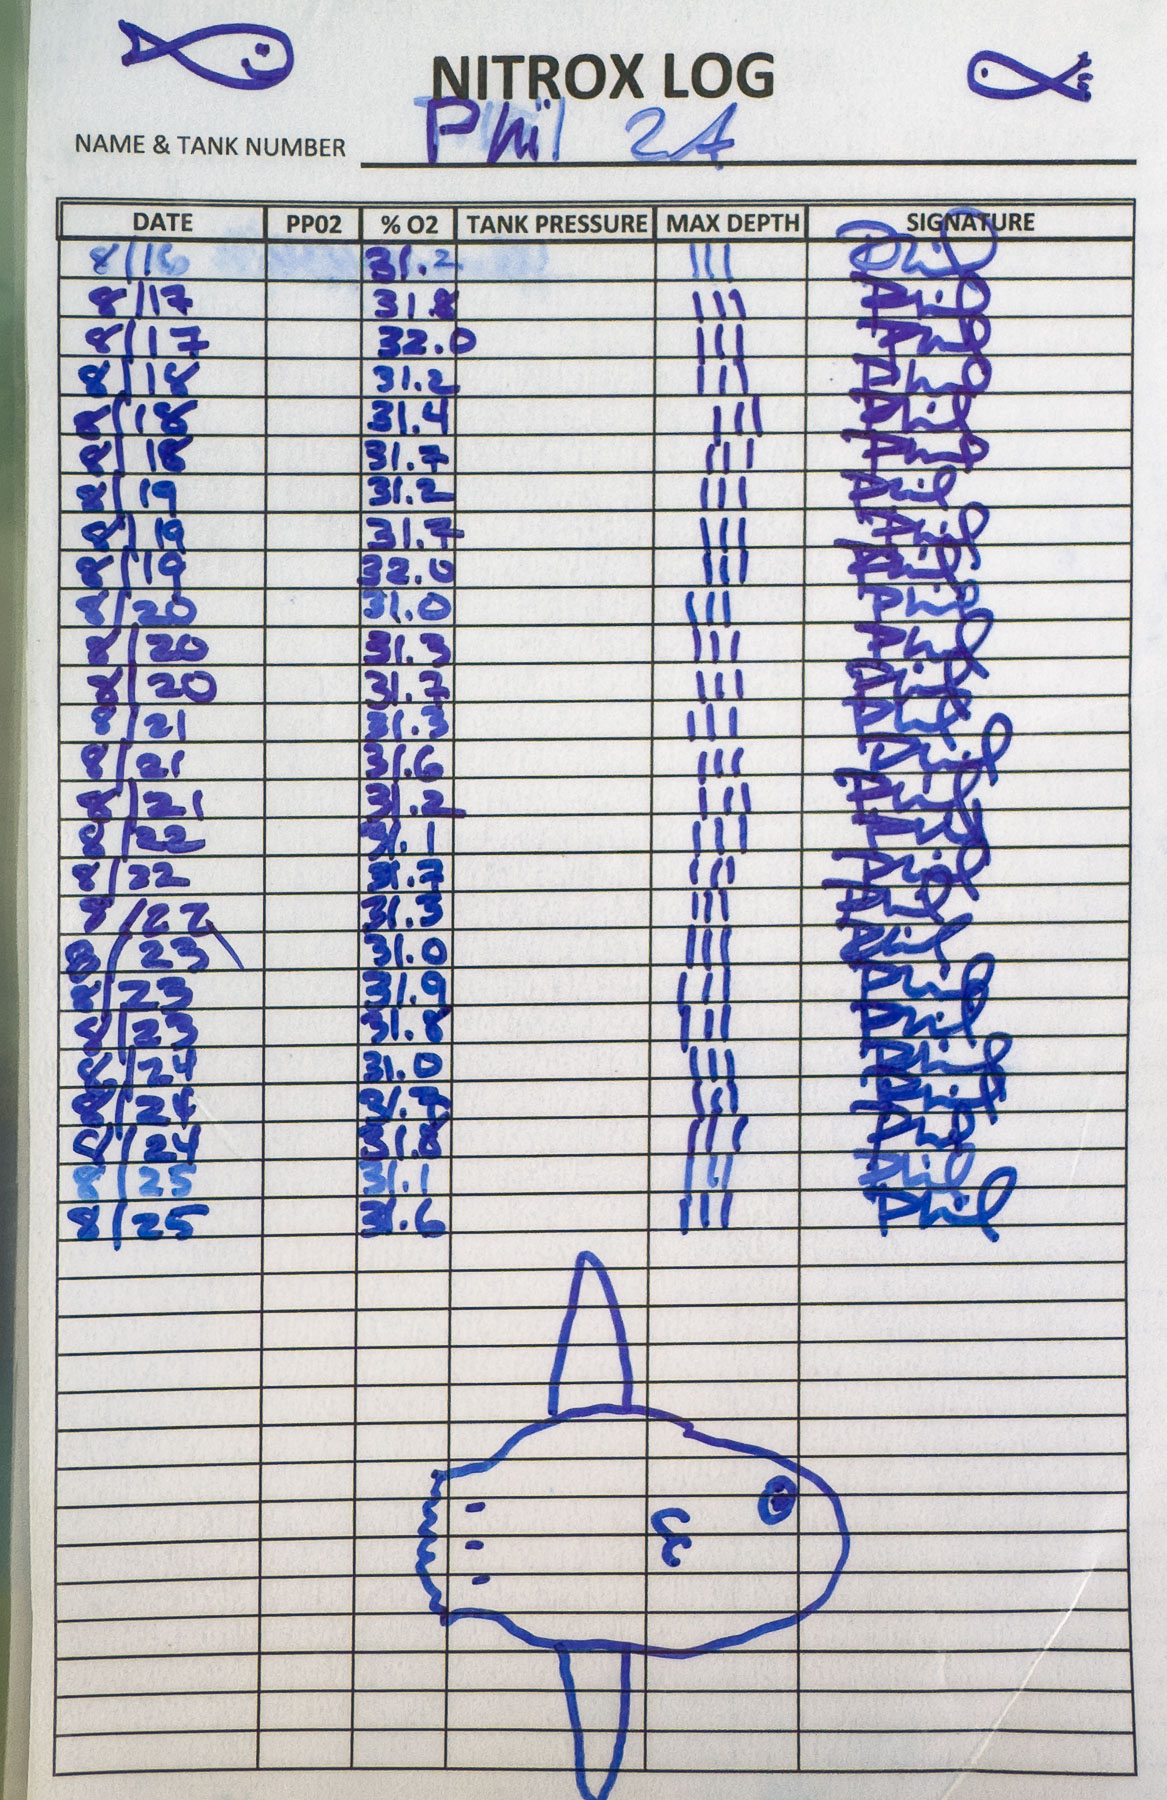 NITROX LOG
NAME & TANK NUMBER Phil 24
DATE PP02 % O2 TANK PRESSURE MAX DEPTH SIGNATURE
8/16 31.2 111 Phil
8/17 31.8 111 Phil
8/17 32.0 111 Phil
8/18 31.2 111 Phil
8/18 31.4 111 Phil
8/18 31.7 111 Phil
8/19 31.2 111 Phil
8/19 31.7 111 Phil
8/19 32.0 111 Phil
8/20 31.0 111 Phil
8/20 31.3 111 Phil
8/20 31.7 111 Phil
8/21 31.3 111 Phil
8/21 31.6 111 Phil
8/21 31.2 111 Phil
8/22 31.1 111 Phil
8/22 31.7 111 Phil
8/22 31.3 111 Phil
8/23 31.0 111 Phil
8/23 31.9 111 Phil
8/23 31.8 111 Phil
8/24 31.0 111 Phil
8/24 31.7 111 Phil
8/24 31.8 111 Phil
8/25 31.1 111 Phil
8/25 31.6 111 Phil